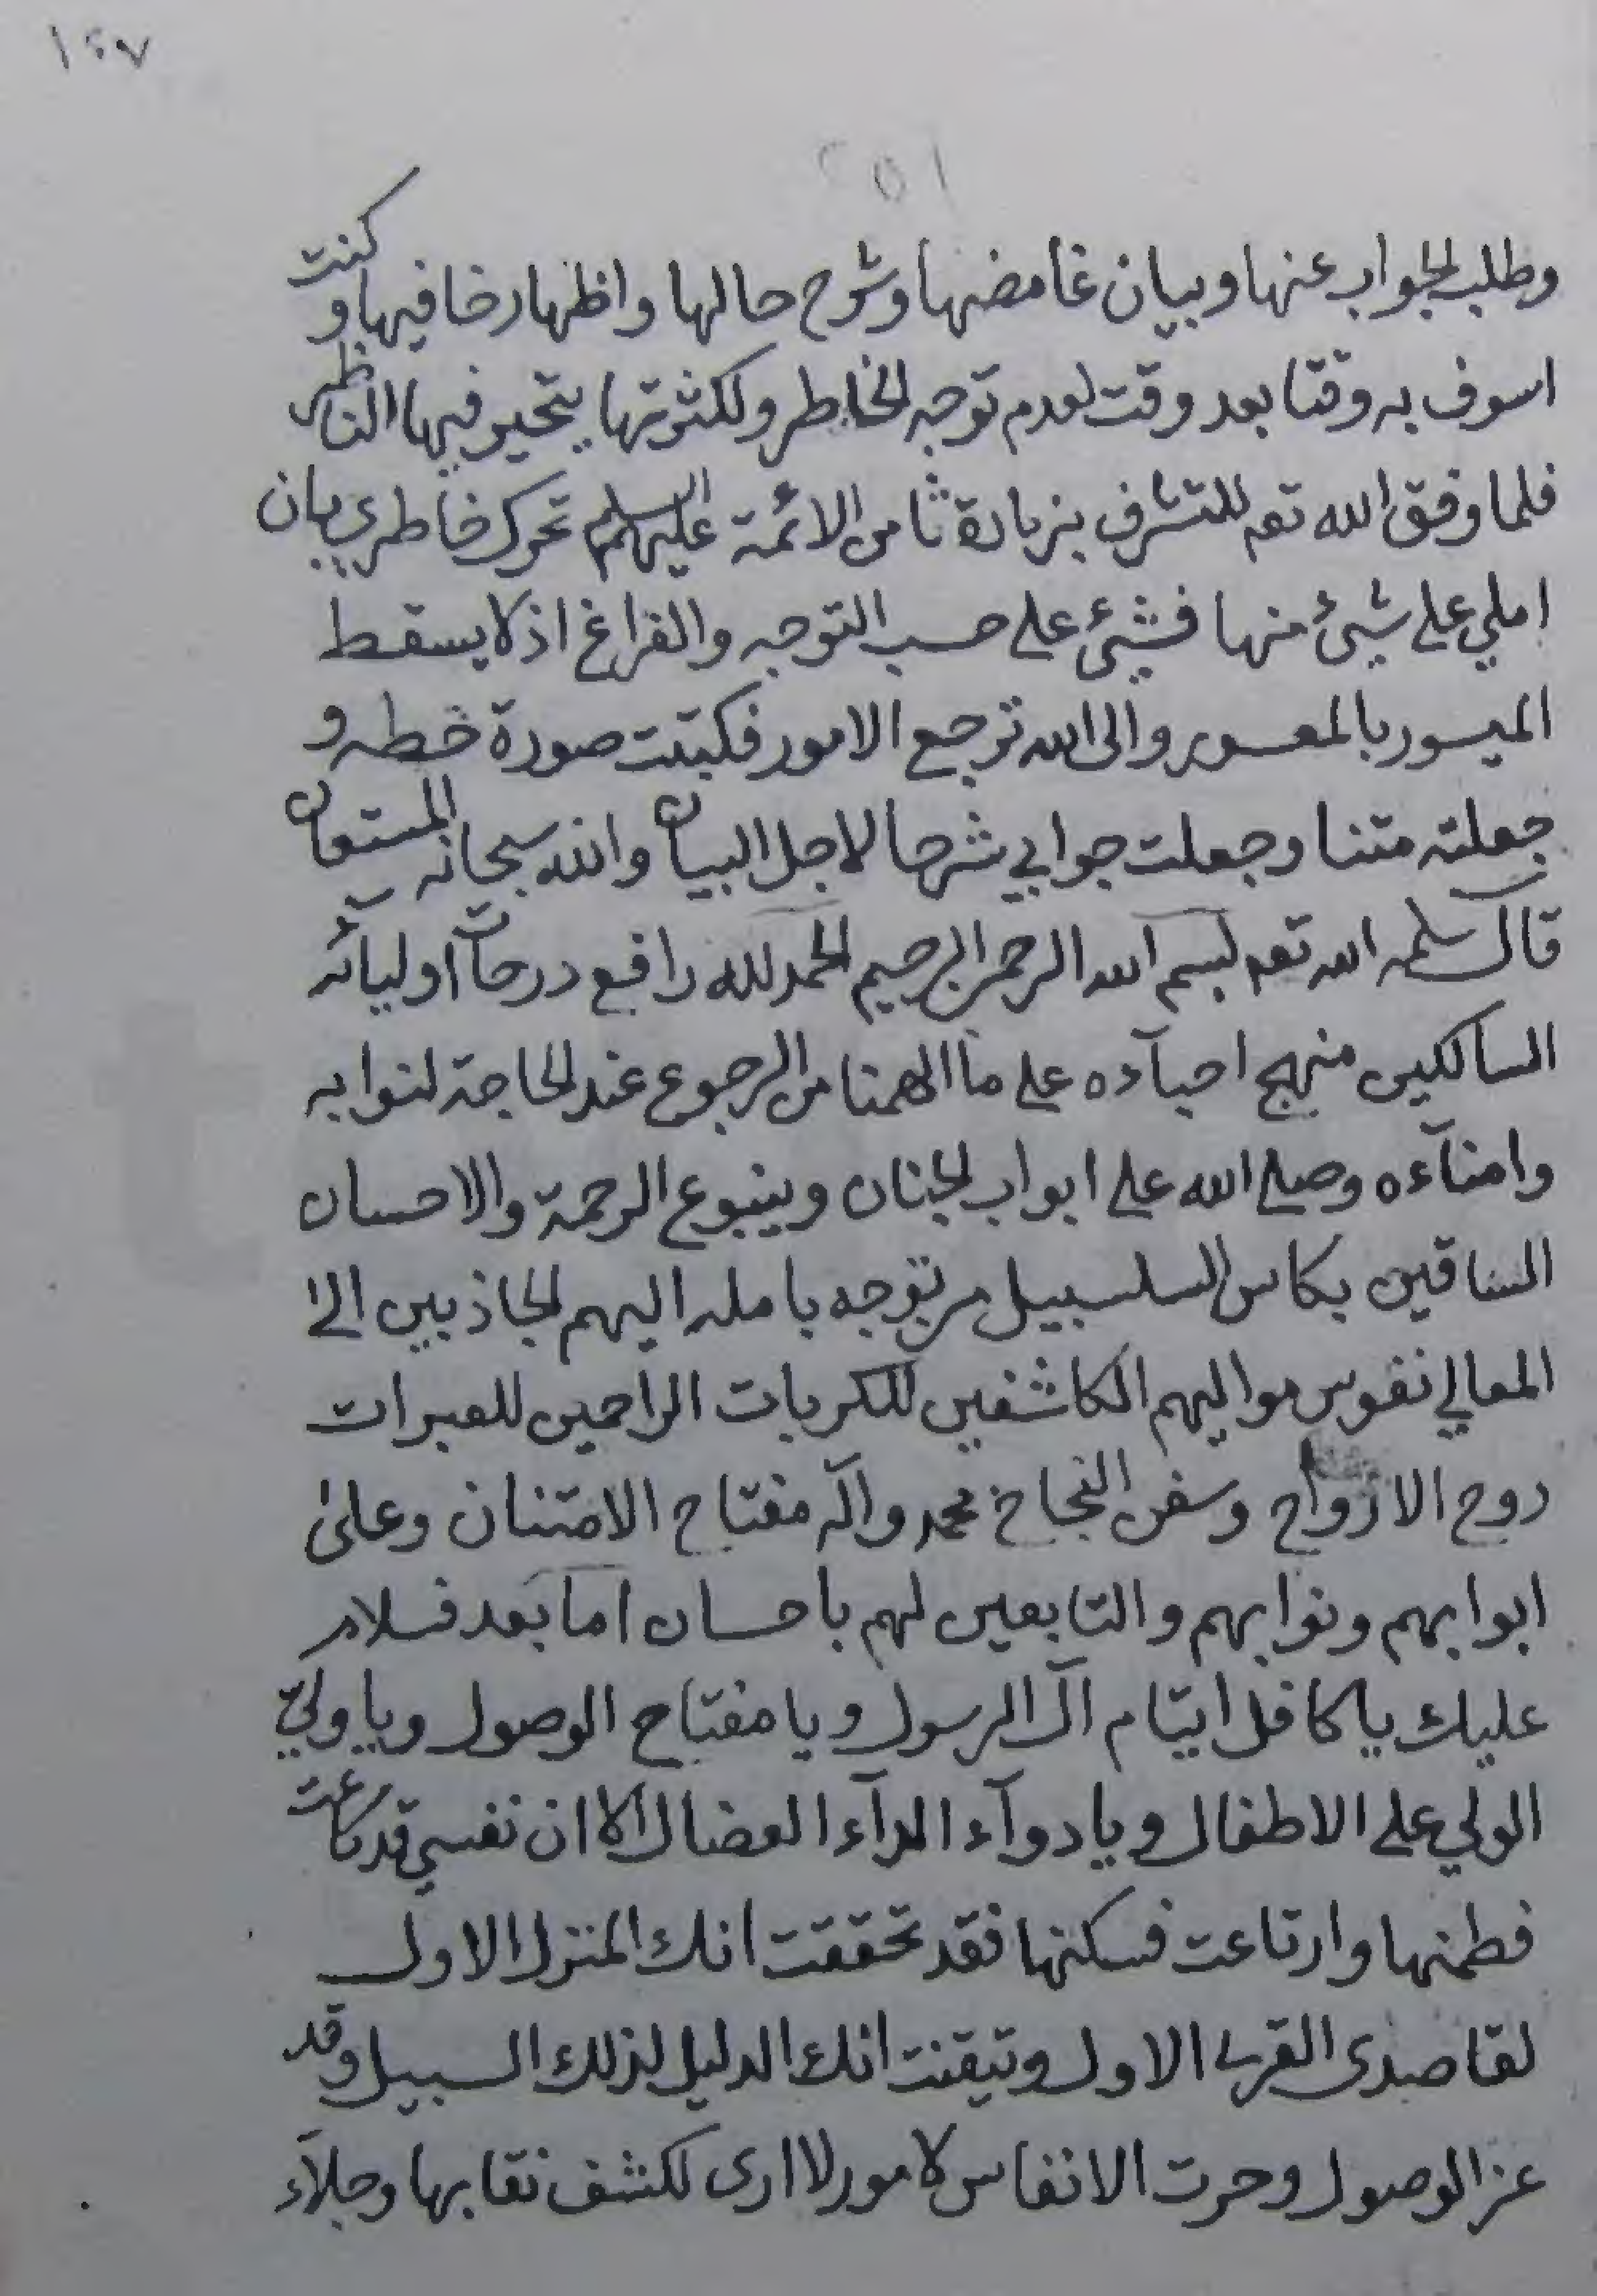 ١٤٧
٢٥١
وطلب الجواب عنها وبيان غامضها وشرح حالها واظهار خافيها و كنت
اسوف به وقتا بعد وقت لعدم توجه الخاطر ولكثرتها يتحير فيها الناظر
فلما وفق الله تعم للتشرف بزيارة ثامن الائمة عليهم السلم تحرك خاطري بان
املي على شيئ منها فشيئ على حسب التوجه والفراغ اذ لا يسقط
الميسور بالمعسور والى الله ترجع الامور فكتبت صورة خطه و
جعلته متنا وجعلت جوابي شرحا لاجل البيان والله سبحانه المستعان
قال سلمه الله تعم بسم الله الرحمن الرحيم الحمد لله رافع درجات اوليائه
السالكين منهج احبآءه على ما الهمنا من الرجوع عند الحاجة لنوابه
وامنآءه وصلى الله على ابواب الجنان وينبوع الرحمة والاحسان
الساقين بكاس السلسبيل من توجه بامله اليهم الجاذبين الى
المعالي نفوس مواليهم الكاشفين للكربات الراحمين للعبرات
روح الارواح وسفن النجاح محمد وآله مفتاح الامتنان وعلى
ابوابهم ونوابهم والتابعين لهم باحسان اما بعد فسلام
عليك يا كافل ايتام آل الرسول ويا مفتاح الوصول ويا وليّ
الولي على الاطفال ويا دوآء الدآء العضال الا ان نفسي قد كاعت
فطمنها وارتاعت فسكنها فقد تحققت انك المنزل الاول
لقاصدى القرى الاول وتيقنت انك الدليل لذلك السبيل وقد
عز الوصول وحرت الانفاس لامور لا ارى لكشف نقابها وجلآء